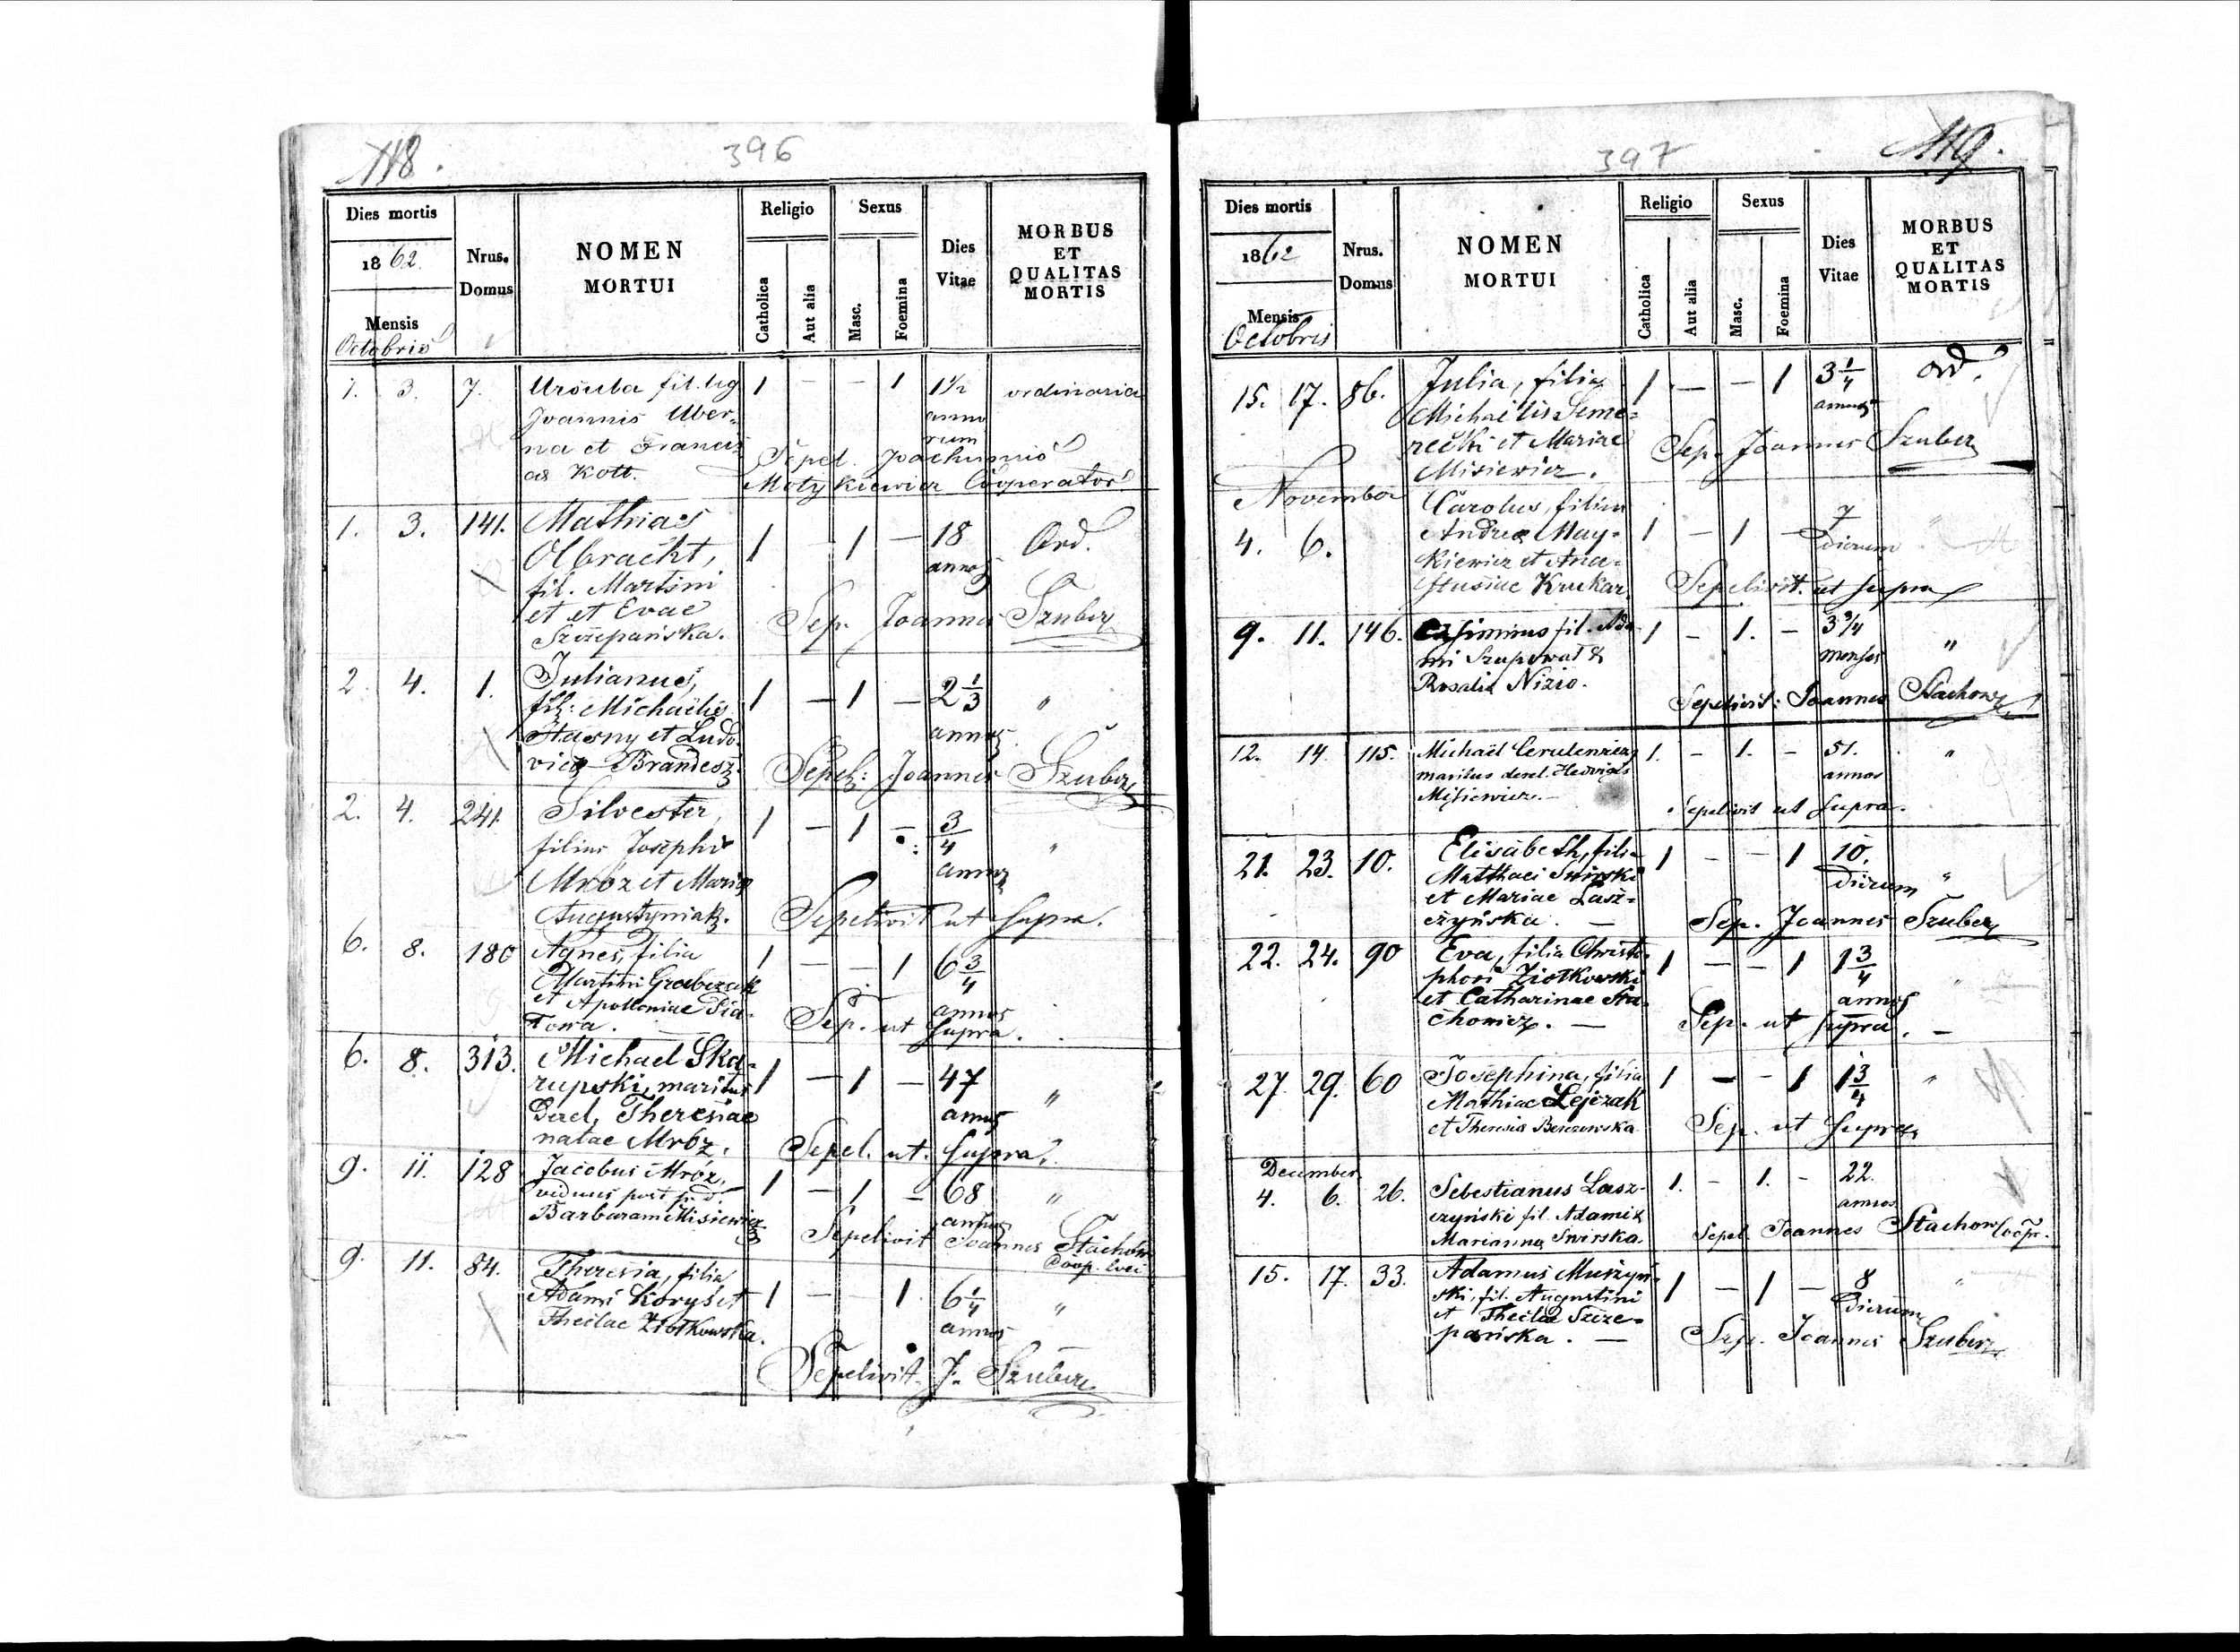 118.
396
Dies mortis
1862.
Mensis
Octobris
Nrus.
Domus
NOMEN
MORTUI
Religio
Catholica
Aut alia
Sexus
Masc.
Foemina
Dies
Vitae
MORBUS
ET
QUALITAS
MORTIS
1. 3. 7. Ursula fil. leg 1 — — 1 1½ ordinaria
Joannis Uber- anno
na et Francis rum
cae Kott. Sepel. Joachimus
Motykiewicz Cooperator
1. 3. 141. Mathias
Olbracht, 1 — 1 — 18 Ord.
fil. Martini annos
et et Evae
Szczepańska. Sep. Joannes Szuberz
2. 4. 1. Julianus,
fil: Michaëlis 1 — 1 — 2 1/3 "
Stasny et Ludo- annos
vica Brandesz. Sepel: Joannes Szuberz
2. 4. 241. Silvester,
filius Josephi 1 — 1 — 3/4 "
Mroz et Maria
Augustyniak. Sepelivit ut supra.
6. 8. 180 Agnes, filia 1 — — 1 6 3/4
Martini Grabczak annos
et Apolloniae
Sep. ut supra.
6. 8. 313. Michael Ska-
rupski, maritus 1 — 1 — 47 "
Derel. Theresiae annos
natae Mróz. Sepel. ut. supra.
9. 11. 128 Jacobus Mróz, 1 — 1 — 68 "
viduus post
Barbaram Misiewicz annos
Sepelivit Joannes Stachow
Coop.
9. 11. 84. Theresia, filia
Adami Koryś et 1 — — 1 6 1/4 "
Theclae Ziołkowska. annos
Sepelivit J. Szuberz
397
119.
Dies mortis
1862
Mensis
Octobris
Nrus.
Domus
NOMEN
MORTUI
Religio
Catholica
Aut alia
Sexus
Masc.
Foemina
Dies
Vitae
MORBUS
ET
QUALITAS
MORTIS
15. 17. 86. Julia, filia 1 — — 1 3 1/4 ord.
Michaëlis Seme- annos
recki et Mariae
Misiewicz. Sep. Joannes Szuberz
November
Carolus, filius 7
4. 6. Andreae May- 1 — 1 — dierum "
kiewicz et Ana-
stusiae Krukar. Sepelivit. ut supra
9. 11. 146. Casimirus fil. Ada- 1 — 1. — 3 3/4 "
mi Szupernat & menses
Rosalia Nizio. Sepelivit: Joannes Stachow
12. 14. 115. Michaël 1. — 1. — 51. "
maritus derel. Hedvigis annos
Misiewicz.— Sepelivit ut supra.
21. 23. 10. Elisabeth, filia 1 — — 1 10. "
Matthaei Swirski dierum
et Mariae Lasz-
czyńska. — Sep. Joannes Szuberz
22. 24. 90 Eva, filia Christo- 1 — — 1 1 3/4 "
phori Ziołkowski annos
et Catharinae Sta-
chowicz. — Sep. ut supra. —
27. 29. 60 Josephina, filia 1 — — 1 1 3/4 "
Mathiae Lejczak
et Theresia Sep. ut supra
December
4. 6. 26. Sebestianus Lasz- 1. — 1. — 22.
czyński fil. Adami & annos
Marianna Swirska. Sepel. Joannes Stachow Coopr.
15. 17. 33. Adamus Muszyń- 1 — 1 — 8 "
ski, fil. Augustini dierum
et Theclae Szcze-
pańska. — Sep. Joannes Szuberz